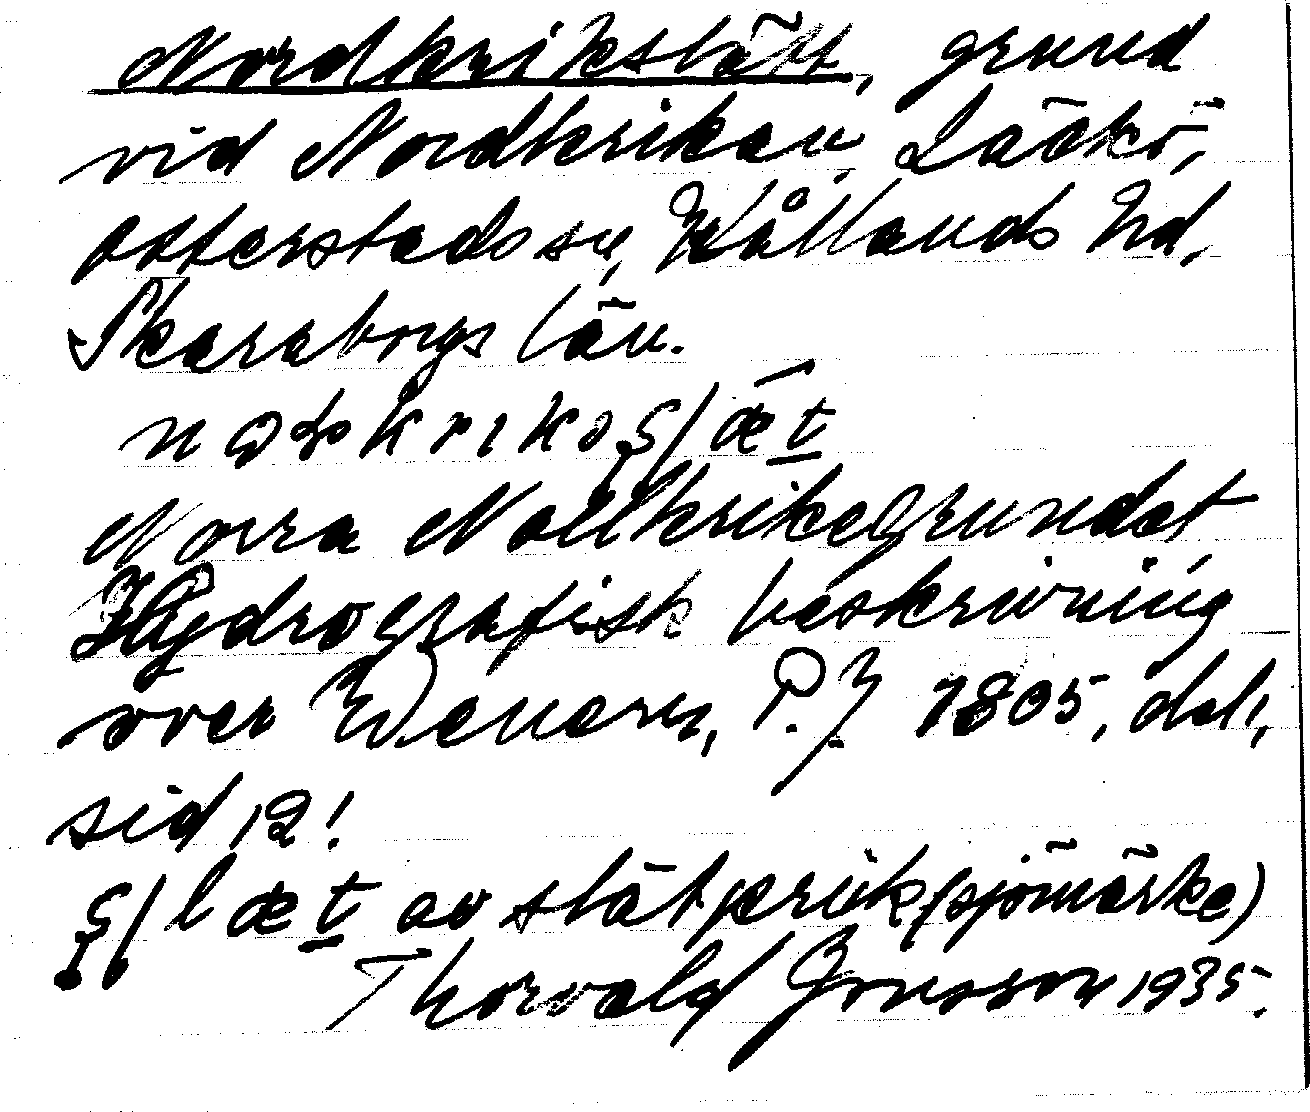 Nordkrikslätt, grund
vid Nordkrikan, Läckö,
Otterstads sn, Kållands hd,
Skaraborgs län.
Norra Nollkrikegrundet
Hydrografisk beskrivning
över Wenern, P. 1805, del 1,
sid 12!
av slätprick (sjömärke)
Thorvald Jonsson 1935.